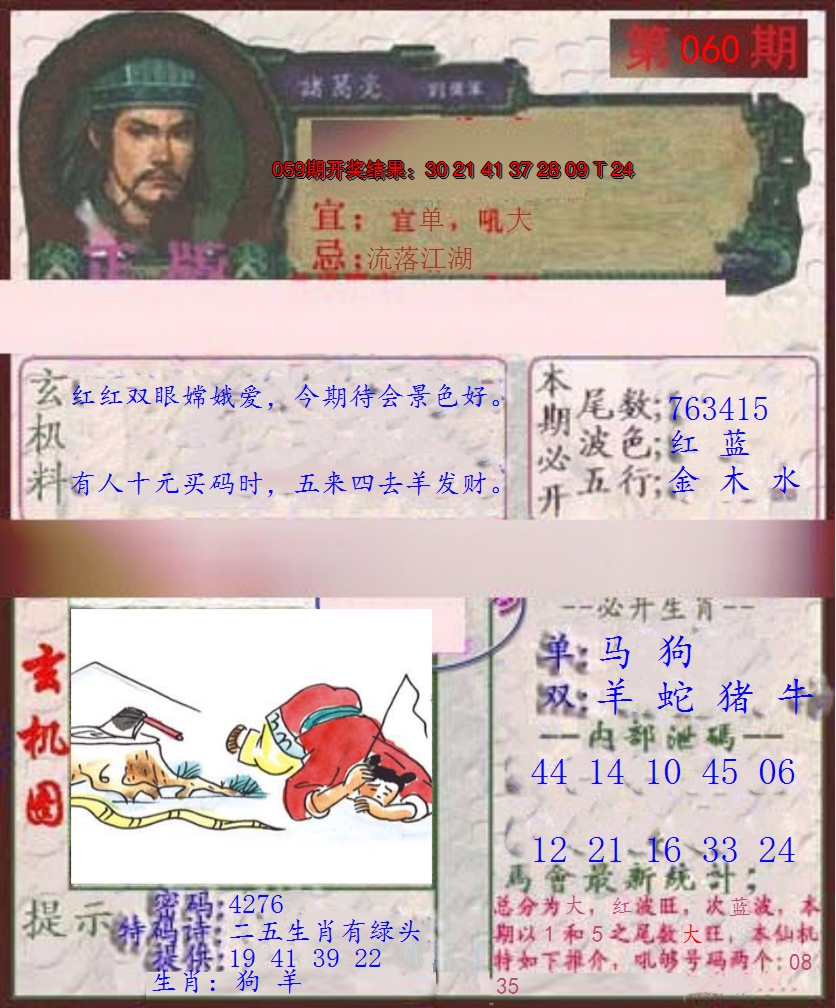 第 060 期
諸葛亮
059期开奖结果：30 21 41 37 28 09 T 24
宜：宜单，吼大
忌：流落江湖
正版
玄机料
红红双眼嫦娥爱，今期待会景色好。
有人十元买码时，五来四去羊发财。
本期必开
尾数：763415
波色：红 蓝
五行：金 木 水
玄机图
--必开生肖--
单：马 狗
双：羊 蛇 猪 牛
—内部泄碼—
44 14 10 45 06
12 21 16 33 24
馬會最新統計；
总分为大，红波旺，次蓝波，本
期以1和5之尾数大旺，本仙机
特如下推介，吼够号码两个：08
35
提示
密码：4276
特码诗：二五生肖有绿头
提供：19 41 39 22
生肖：狗 羊